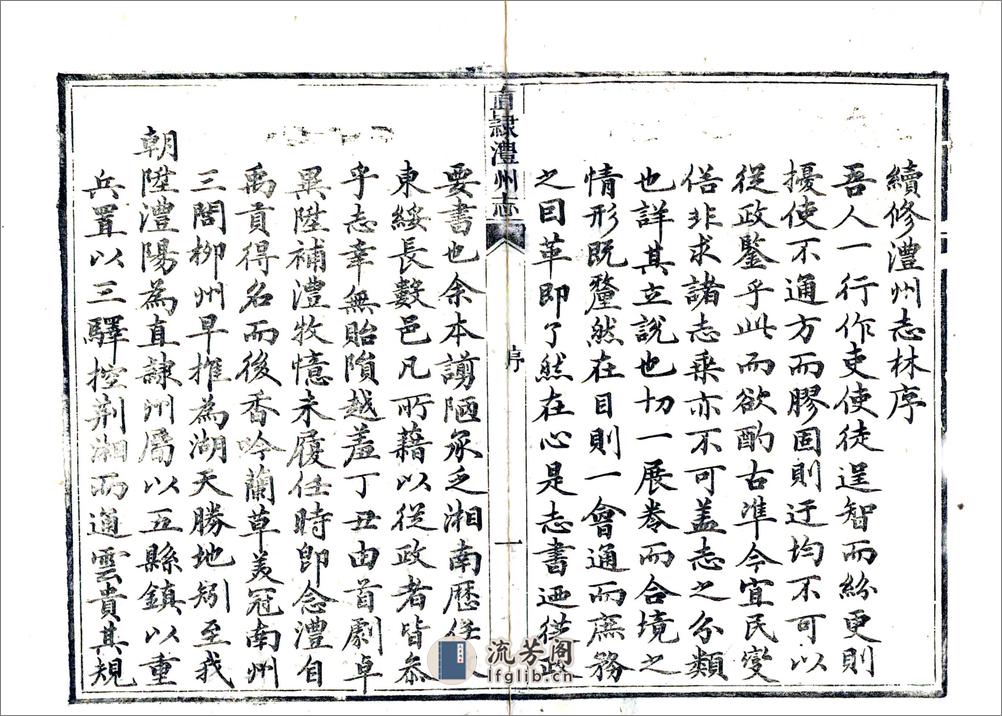 續修澧州志林序
吾人一行作吏使徒逞智而紛更則
擾使不通方而膠固則迂均不可以
從政鑒乎此而欲酌古準今宜民變
俗非求諸志乘亦不可蓋志之分類
也詳其立說也切一展卷而合境之
情形既釐然在目則一會通而庶務
之因革即了然在心是志書迺從政
直隸澧州志
序
一
要書也余本謭陋忝乏湘南歷任
東綏長數邑凡所藉以從政者皆叅
乎志幸無貽隕越羞丁丑由首劇卓
異陞補澧牧憶未履任時即念澧自
禹貢得名而後香吟蘭草美冠南州
三閭柳州早推為湖天勝地矧至我
朝陞澧陽為直隸州屬以五縣鎮以重
兵置以三驛控荆湘而通雲貴其規
流芳阁
lfglib.cn